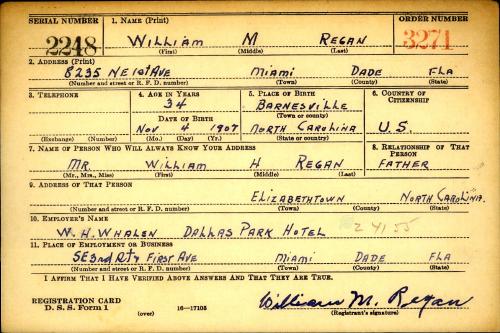 SERIAL NUMBER 1. NAME (Print) ORDER NUMBER
2248 WILLIAM M REGAN 3271
(First) (Middle) (Last)
2. ADDRESS (Print)
8235 NE 1st AVE MIAMI DADE FLA
(Number and street or R. F. D. number) (Town) (County) (State)
3. TELEPHONE 4. AGE IN YEARS 5. PLACE OF BIRTH 6. COUNTRY OF CITIZENSHIP
34 BARNESVILLE
DATE OF BIRTH (Town or county)
NOV 4 1907 NORTH CAROLINA U.S.
(Exchange) (Number) (Mo.) (Day) (Yr.) (State or country)
7. NAME OF PERSON WHO WILL ALWAYS KNOW YOUR ADDRESS 8. RELATIONSHIP OF THAT PERSON
MR. WILLIAM H REGAN FATHER
(Mr., Mrs., Miss) (First) (Middle) (Last)
9. ADDRESS OF THAT PERSON
ELIZABETHTOWN NORTH CAROLINA
(Number and street or R. F. D. number) (Town) (County) (State)
10. EMPLOYER'S NAME
W. H. WHALEN DALLAS PARK HOTEL 24155
11. PLACE OF EMPLOYMENT OR BUSINESS
SE 3rd FIRST AVE MIAMI DADE FLA
(Number and street or R. F. D. number) (Town) (County) (State)
I AFFIRM THAT I HAVE VERIFIED ABOVE ANSWERS AND THAT THEY ARE TRUE.
REGISTRATION CARD
D. S. S. Form 1 (over) 16—17105 William M. Regan
(Registrant's signature)